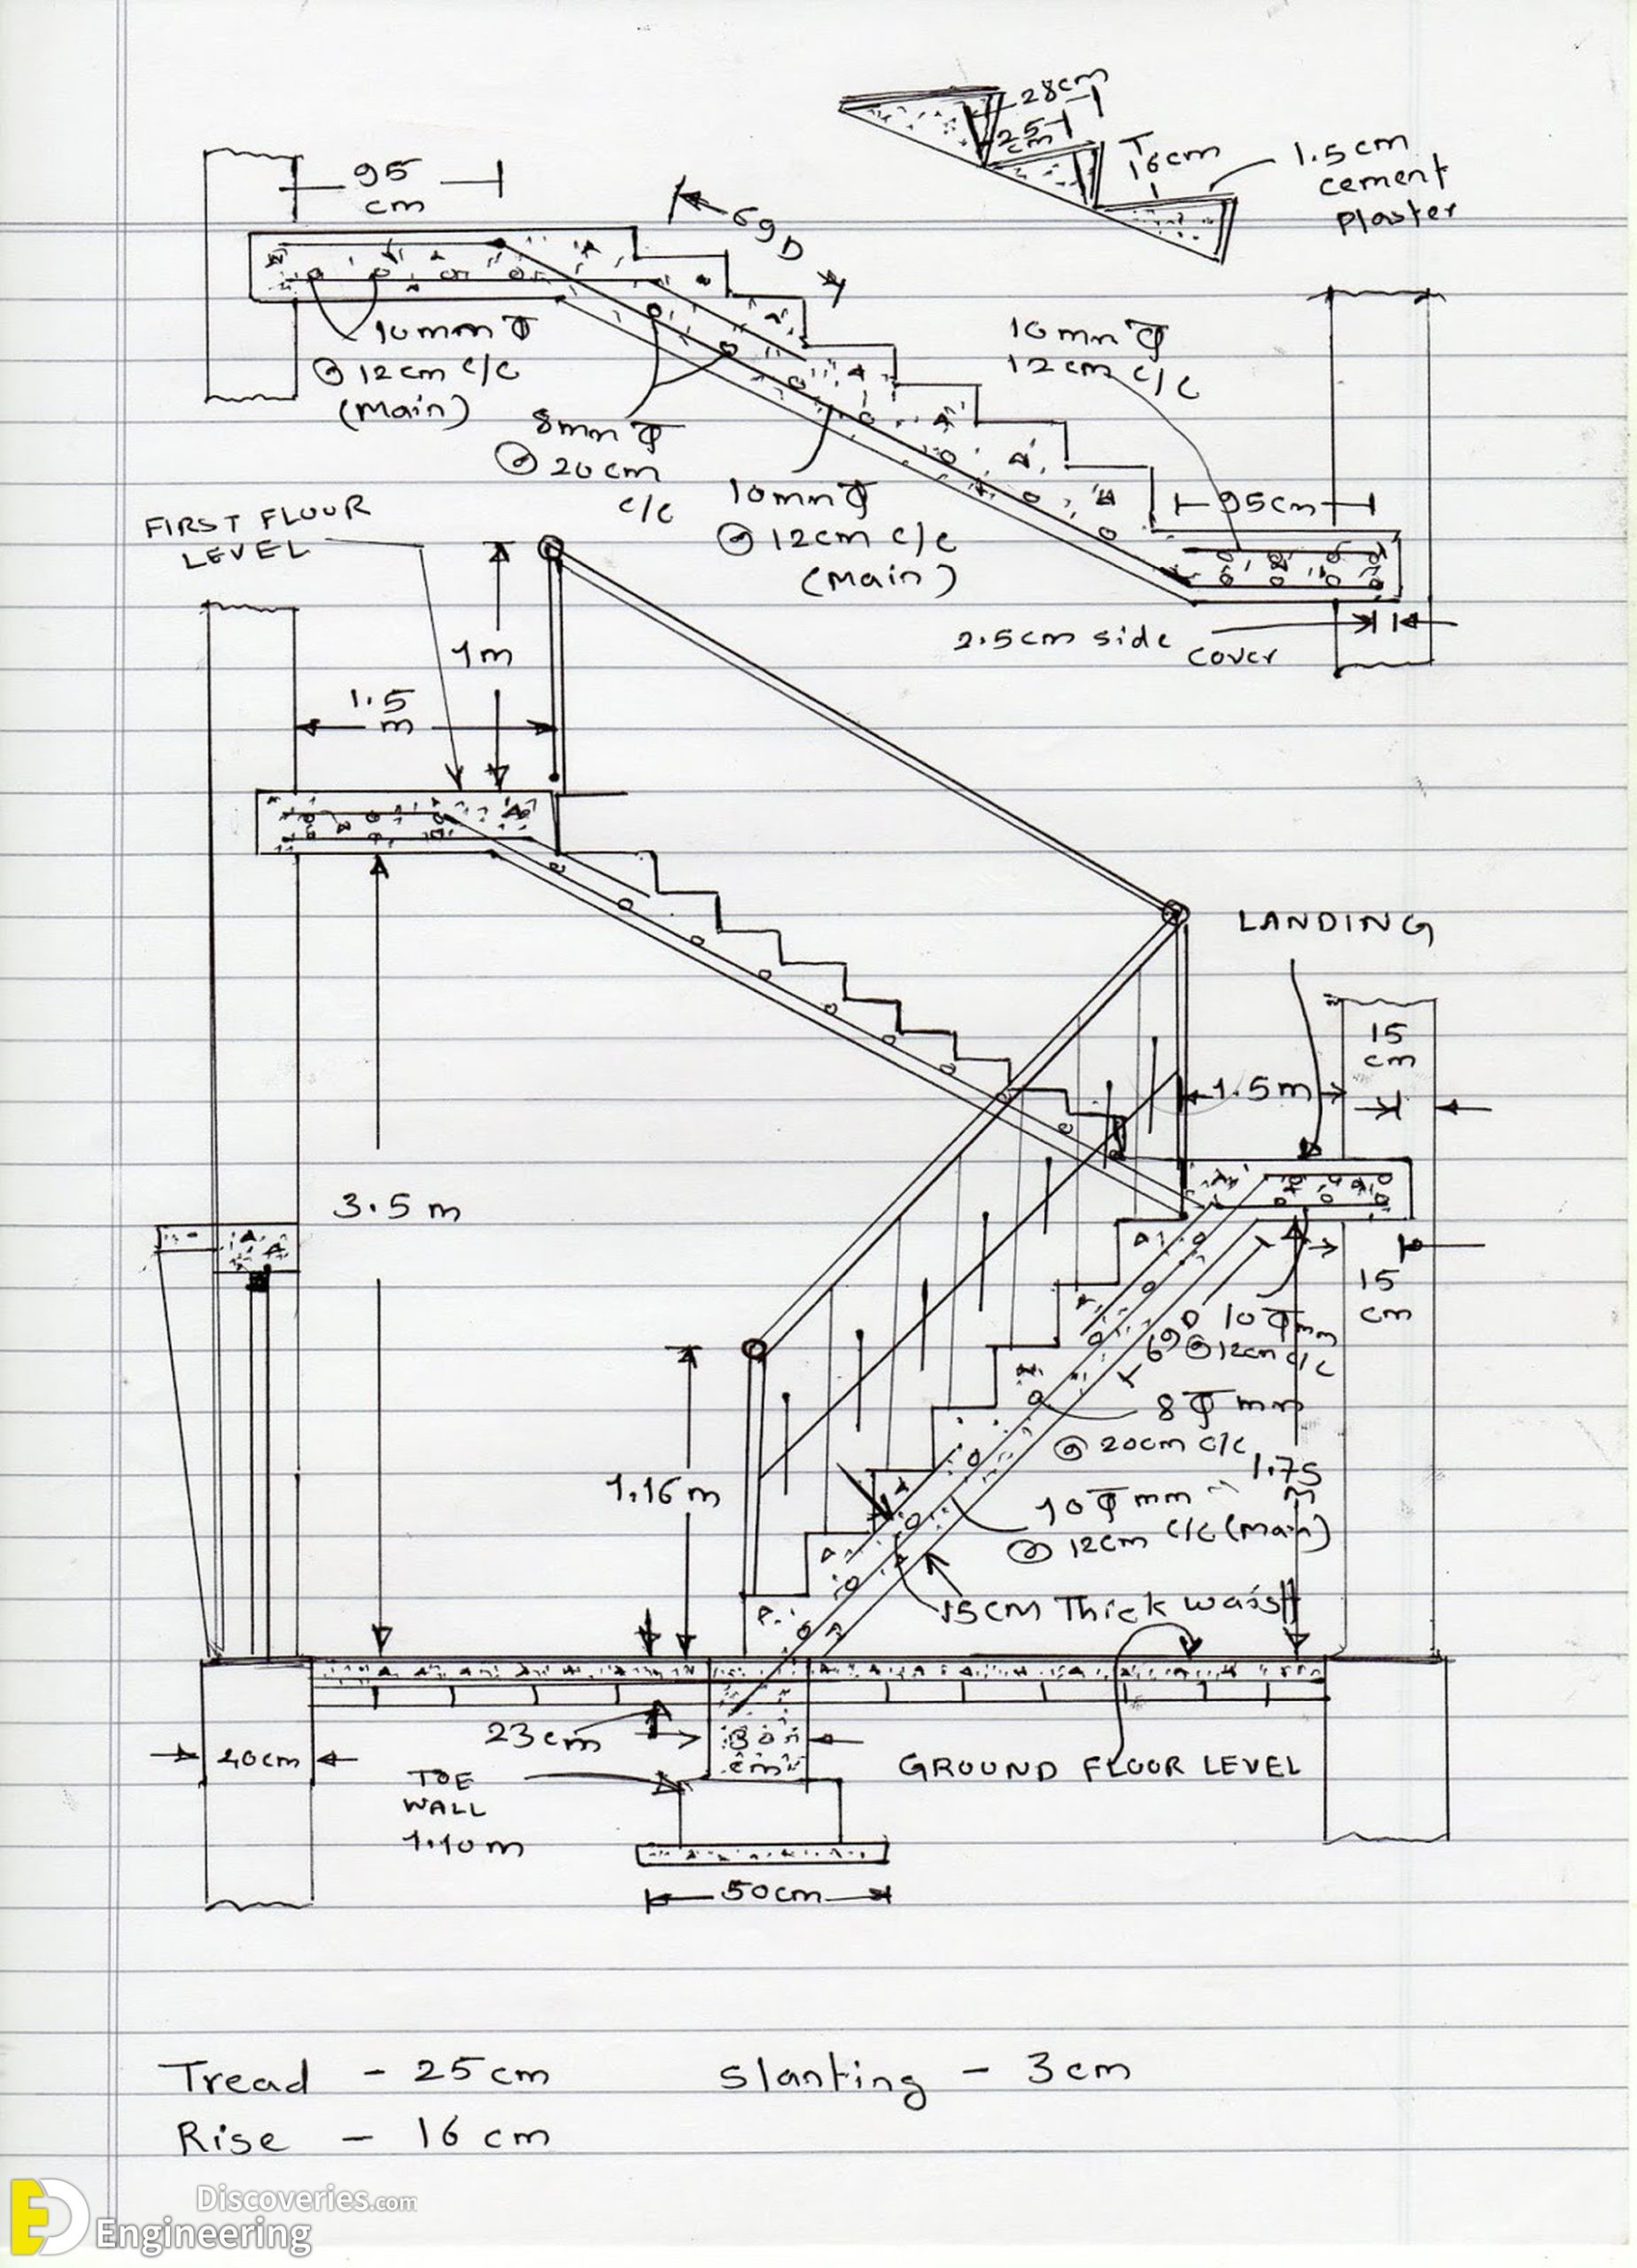 28cm
25
cm
16cm
1.5cm
cement
plaster
95
cm
69D
10mm Φ
@ 12cm c/c
(Main)
8mm Φ
@ 20cm
c/c
10mm Φ
@ 12cm c/c
(Main)
10mm Φ
12cm c/c
95cm
2.5cm side
cover
FIRST FLOOR
LEVEL
1m
1.5
m
LANDING
15
cm
1.5m
3.5m
15
cm
69D
10 Φ mm
@ 12cm c/c
8 Φ mm
@ 20cm c/c
1.75
m
10 Φ mm
@ 12cm c/c (main)
1.16m
15cm Thick waist
23cm
30
cm
40cm
TOE
WALL
1.10m
GROUND FLOOR LEVEL
50cm
Tread - 25cm slanting - 3cm
Rise - 16cm
ED
Discoveries.com
Engineering